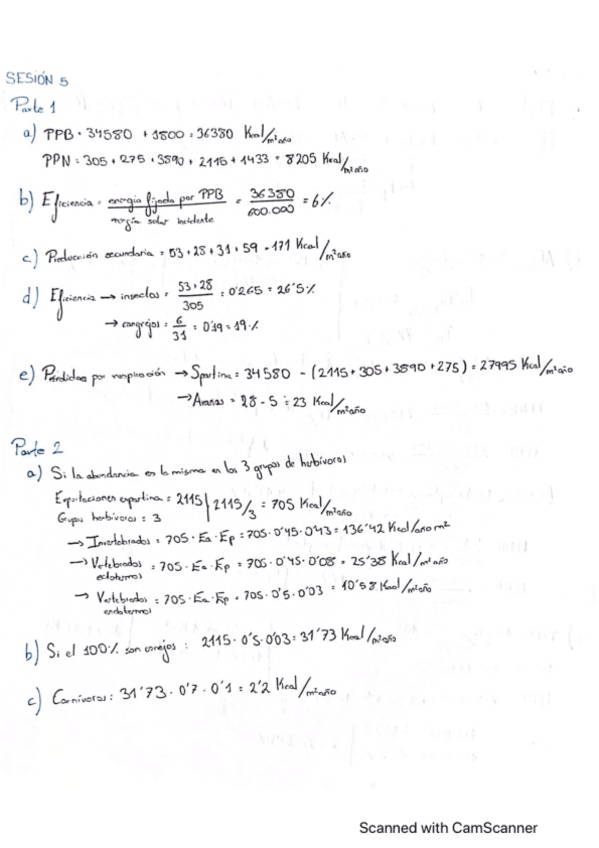 SESIÓN 5
Parte 1
a) PPB = 34580 + 1800 = 36380 Kcal/m²año
PPN = 305 + 275 + 3890 + 2115 + 1433 = 8205 Kcal/m²año
b) Eficiencia = energía fijada por PPB / energía solar incidente = 36380 / 600.000 = 6%
c) Producción secundaria = 53 + 28 + 31 + 59 = 171 Kcal/m²año
d) Eficiencia → insectos = 53+28 / 305 = 0'265 = 26'5%
→ cangrejos = 6 / 31 = 0'19 = 19%
e) Pérdidas por respiración → Spartina = 34580 - (2115 + 305 + 3890 + 275) = 27995 Kcal/m²año
→ Arañas = 28 - 5 = 23 Kcal/m²año
Parte 2
a) Si la abundancia es la misma en los 3 grupos de herbívoros
Exportaciones espartina = 2115 | 2115/3 = 705 Kcal/m²año
Grupos herbívoros = 3
→ Invertebrados = 705 · Ea · Ep = 705 · 0'45 · 0'43 = 136'42 Kcal/año m²
→ Vertebrados ectotermos = 705 · Ea · Ep = 705 · 0'45 · 0'08 = 25'38 Kcal/m²año
→ Vertebrados endotermos = 705 · Ea · Ep = 705 · 0'5 · 0'03 = 10'58 Kcal/m²año
b) Si el 100% son conejos : 2115 · 0'5 · 0'03 = 31'73 Kcal/m²año
c) Carnívoros : 31'73 · 0'7 · 0'1 = 2'2 Kcal/m²año
Scanned with CamScanner